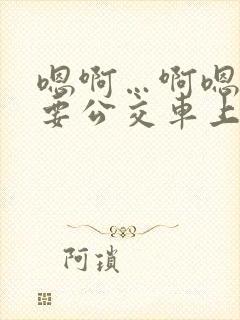 嗯啊…啊嗯
要公交车上
阿琐